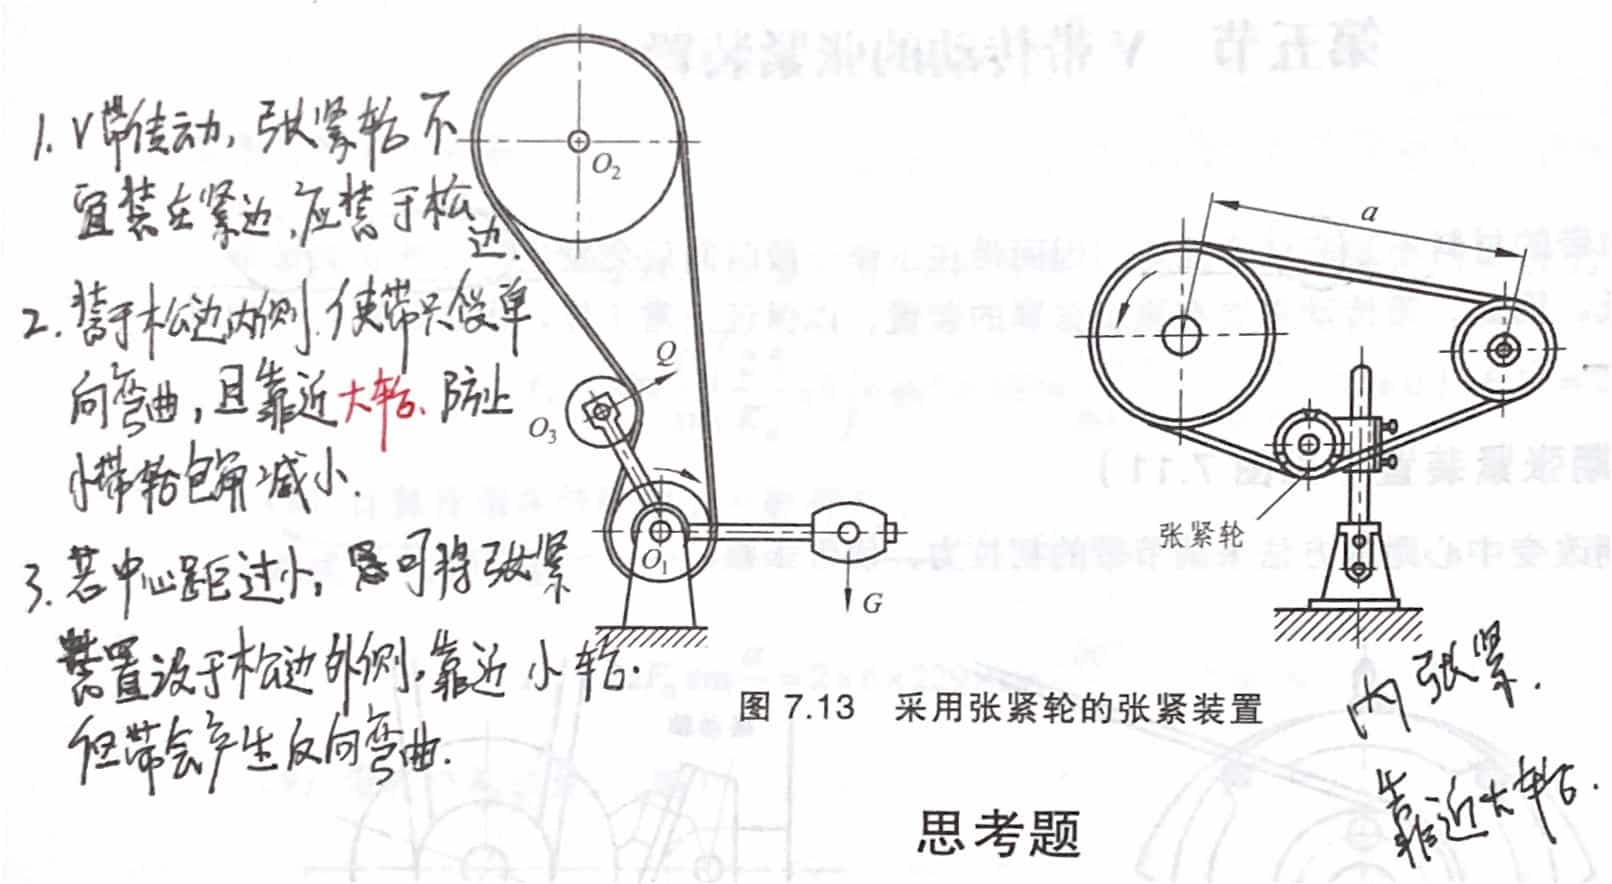 1. V带传动，张紧轮不
宜装在紧边，应装于松
边.
2. 装于松边内侧，使带只受单
向弯曲，且靠近大轮、防止
小带轮包角减小.
3. 若中心距过小，可将张紧
装置设于松边外侧，靠近小轮.
但带会产生反向弯曲.
O₂
Q
O₃
O₁
G
a
张紧轮
图 7.13 采用张紧轮的张紧装置
内张紧.
靠近大轮.
思考题